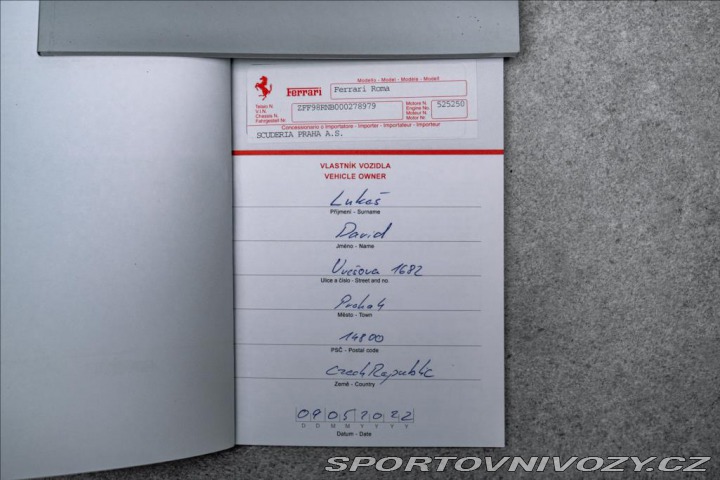 Modello - Model - Modèle - Modell
Ferrari
Ferrari Roma
Telaio N.
V.I.N.
Chassis N.
Fahrgestell Nr
ZFF98RNB000278979
Motore N.
Engine No.
Moteur N.
Motor Nr
525250
Concessionario o Importatore - Importer - Importateur - Importeur
SCUDERIA PRAHA A.S.
VLASTNÍK VOZIDLA
VEHICLE OWNER
Lukeš
Příjmení - Surname
David
Jméno - Name
1682
Ulice a číslo - Street and no
Praha 4
Město - Town
14800
PSČ - Postal code
Czech Republic
Země - Country
09052022
D D M M Y Y Y Y
Datum - Date
SPORTOVNIVOZY.CZ